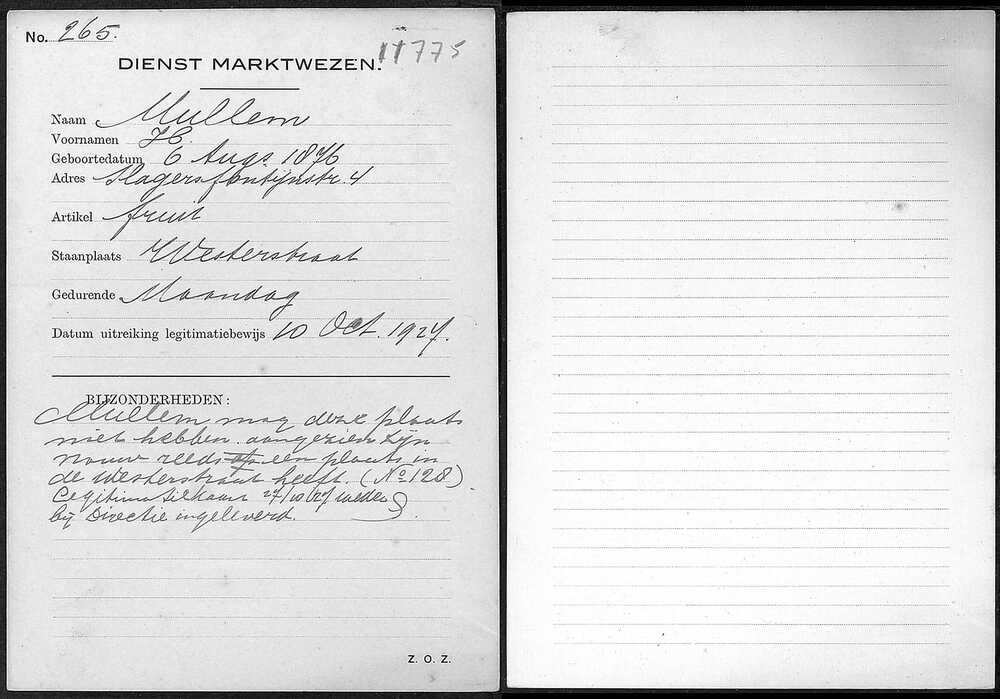 No. 265.
11775
DIENST MARKTWEZEN.
Naam Mullem
Voornamen
Geboortedatum 6 Augs. 1876
Adres Slagersfontijnstr. 4
Artikel fruit
Staanplaats Westerstraat
Gedurende Maandag
Datum uitreiking legitimatiebewijs 10 Oct. 1927.
BIJZONDERHEDEN:
Mullem mag deze plaats
niet hebben. aangezien zijn
vrouw reeds op een plaats in
de Westerstraat heeft. (No 128)
Legitimatiekaart 27/10/27 weder
bij Directie ingeleverd.
Z. O. Z.